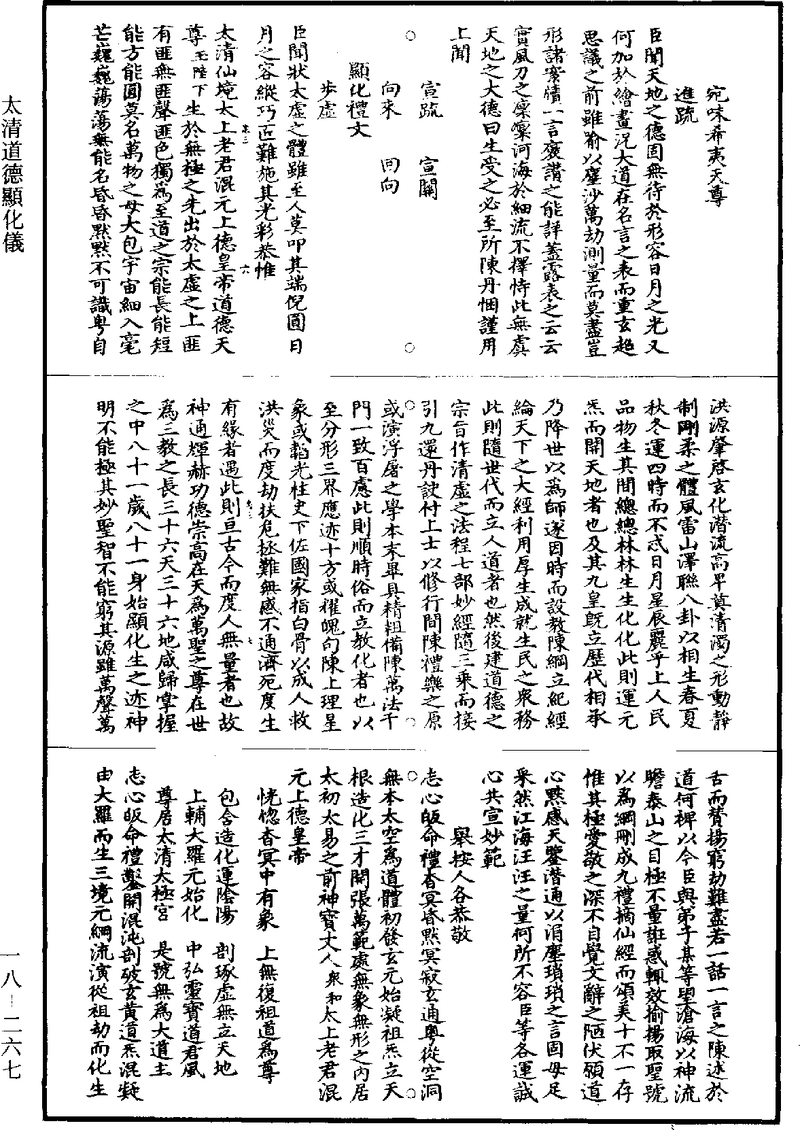 太清道德顯化儀
一八—二六七
宛味希夷天尊
進疏
臣聞天地之德固無待於形容日月之光又
何加於繪畫況大道在名言之表而重玄超
思議之前雖喻以塵沙萬劫測量而莫盡豈
形諸寮牘一言褒讚之能詳蓋露表之云云
實風刀之凜凜河海於細流不擇恃此無虞
天地之大德曰生受之必至所陳丹悃謹用
上聞
宣疏 宣關
向來 回向
顯化禮文
步虛
臣聞狀太虛之體雖至人莫叩其端倪圓日
月之容縱巧匠難施其光彩恭惟
太清仙境太上老君混元上德皇帝道德天
尊玉陛下生於無極之先出於太虛之上匪
有匪無匪聲匪色獨為至道之宗能長能短
能方能圓莫名萬物之母大包宇宙細入毫
芒巍巍蕩蕩無能名昏昏默默不可識粵自
洪源肇啓玄化潛流高卑奠清濁之形動靜
制剛柔之體風雷山澤聯八卦以相生春夏
秋冬運四時而不忒日月星辰麗乎上人民
品物生其間總總林林生生化化此則運元
炁而開天地者也及其九皇既立歷代相承
乃降世以為師遂因時而設教陳綱立紀經
綸天下之大經利用厚生成就生民之衆務
此則隨世代而立人道者也然後建道德之
宗旨作清虛之法程七部妙經隨三乘而接
引九還丹訣付上士以修行間陳禮樂之原
或演浮屠之學本末畢具精粗備陳萬法千
門一致百慮此則順時俗而立教化者也以
至分形三界應迹十方或耀魄句陳上理星
象或韜光柱史下佐國家指白骨以成人救
洪災而度劫扶危拯難無感不通濟死度生
有緣者遇此則亘古今而度人無量者也故
神通輝赫功德崇高在天為萬聖之尊在世
為三教之長三十六天三十六地咸歸掌握
之中八十一歲八十一身始顯化生之迹神
明不能極其妙聖智不能窮其源雖萬聲萬
舌而贊揚窮劫難盡若一話一言之陳述於
道何裨以今臣與弟子某等望滄海以神流
瞻泰山之目極不量誑惑輒效揄揚取聖號
以為綱剛成九禮摘仙經而頌美十不一存
惟其極愛敬之深不自覺文辭之陋伏願道
心默感天鑒潛通以涓塵瑣瑣之言固毋足
采然江海汪汪之量何所不容臣等各運誠
心共宣妙範
舉按人各恭敬
志心皈命禮杳冥昏默冥寂玄通粵從空洞
無本太空為道體初發玄元始凝祖炁立天
根造化三才開張萬範處無象無形之內居
太初太易之前神寶丈人衆和太上老君混
元上德皇帝
恍惚杳冥中有象 上無復祖道為尊
包合造化運陰陽 剖琢虛無立天地
上輔大羅元始化 中弘靈寶道君風
尊居太清太極宮 是號無為大道主
志心皈命禮鑿開混沌剖破玄黃道炁混凝
由大羅而生三境元綱流演從祖劫而化生